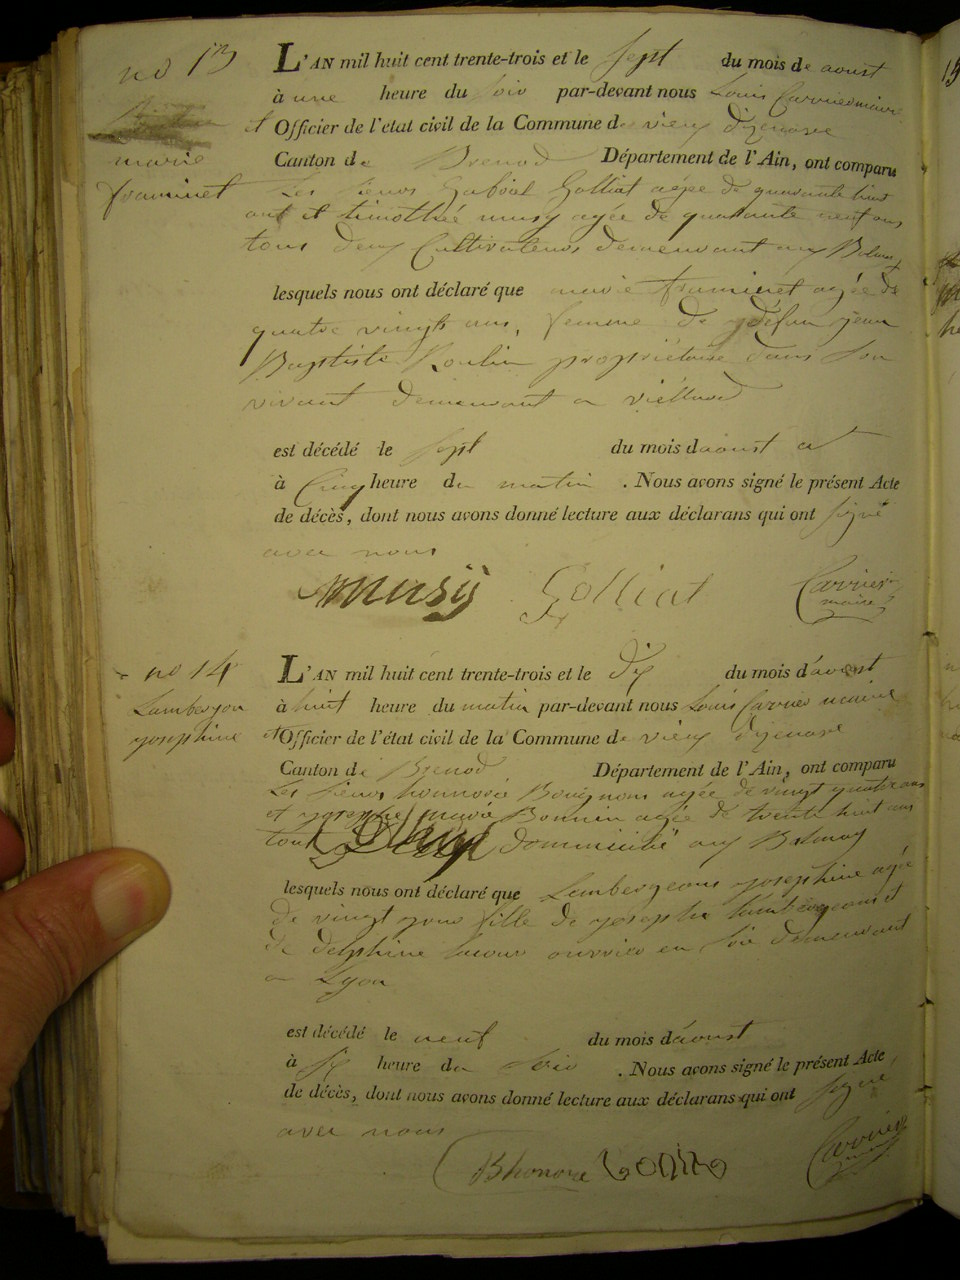 no 13
marie
framinet
L'AN mil huit cent trente-trois et le sept du mois de aoust
à une heure du soir par-devant nous Louis Carrier maire
et Officier de l'état civil de la Commune de vieux d'izenave
Canton de Brenod Département de l'Ain, ont comparu
Les sieurs Golliat agée de quarante huit
ant et timothée musy agée de quarante neuf ans
tous deux Cultivateurs demeurant au Balmay
lesquels nous ont déclaré que marie framinet agée de
quatre vingts ans, femme de defun jean
Baptiste Roulin propriétaire dans son
vivant demeurant a
est décédé le sept du mois daoust
à Cinq heure du matin . Nous avons signé le présent Acte
de décès, dont nous avons donné lecture aux déclarans qui ont signé
avec nous
musy Golliat Carrier
maire
no 14
Lambergon
yosephine
L'AN mil huit cent trente-trois et le dix du mois d'avoust
à huit heure du matin par-devant nous Louis Carrier maire
et Officier de l'état civil de la Commune de vieux d'izenave
Canton de Brenod Département de l'Ain, ont comparu
Les sieurs honnoré agée de vingt quatre ans
et marie Bonnin agée de trente huit ans
tous Deux au Balmay
lesquels nous ont déclaré que Lambergeons yosephine agée
de vingt jour fille de yosephe et
de delphine ouvrier en soie demeurant
a Lyon
est décédé le neuf du mois daoust
à six heure du soir . Nous avons signé le présent Acte
de décès, dont nous avons donné lecture aux déclarans qui ont signé
avec nous
Bhonore Carrier